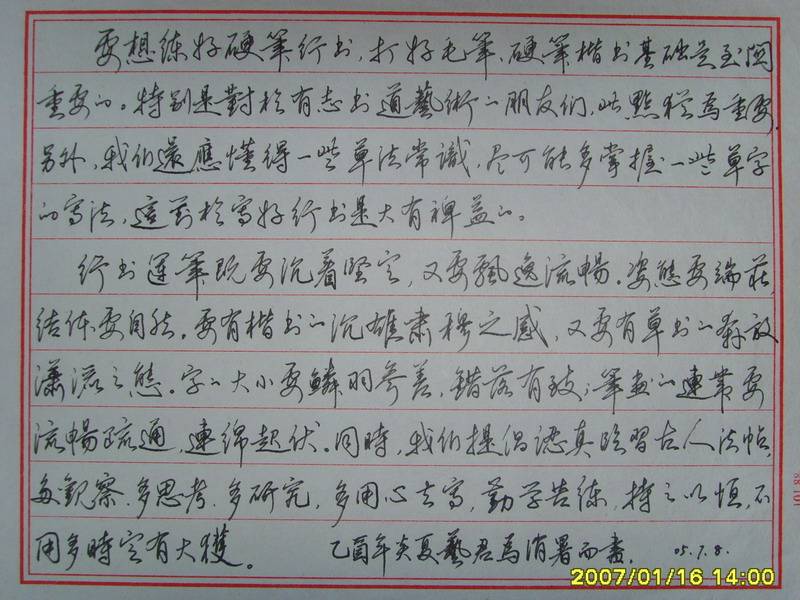 要想练好硬筆行书,打好毛筆、硬筆楷书基础是至関
重要的。特别是對於有志书道藝術的朋友们,此點猶為重要。
另外,我们還應懂得一些草法常識,尽可能多掌握一些草字
的寫法,這對於寫好行书是大有裨益的。
行书運筆既要沉着坚定,又要飄逸流暢。姿態要端莊,
结体要自然。要有楷书的沉雄肃穆之感,又要有草书的奔放
潇洒之態。字的大小要鳞羽参差,錯落有致;筆画的連带要
流暢疏通,連綿起伏。同時,我们提倡認真临習古人法帖,
多観察、多思考、多研究,多用心去寫,勤学苦练,持之以恒,不
用多時定有大獲。 乙酉年炎夏藝君為消暑而書. 05.7.8.
2007/01/16 14:00